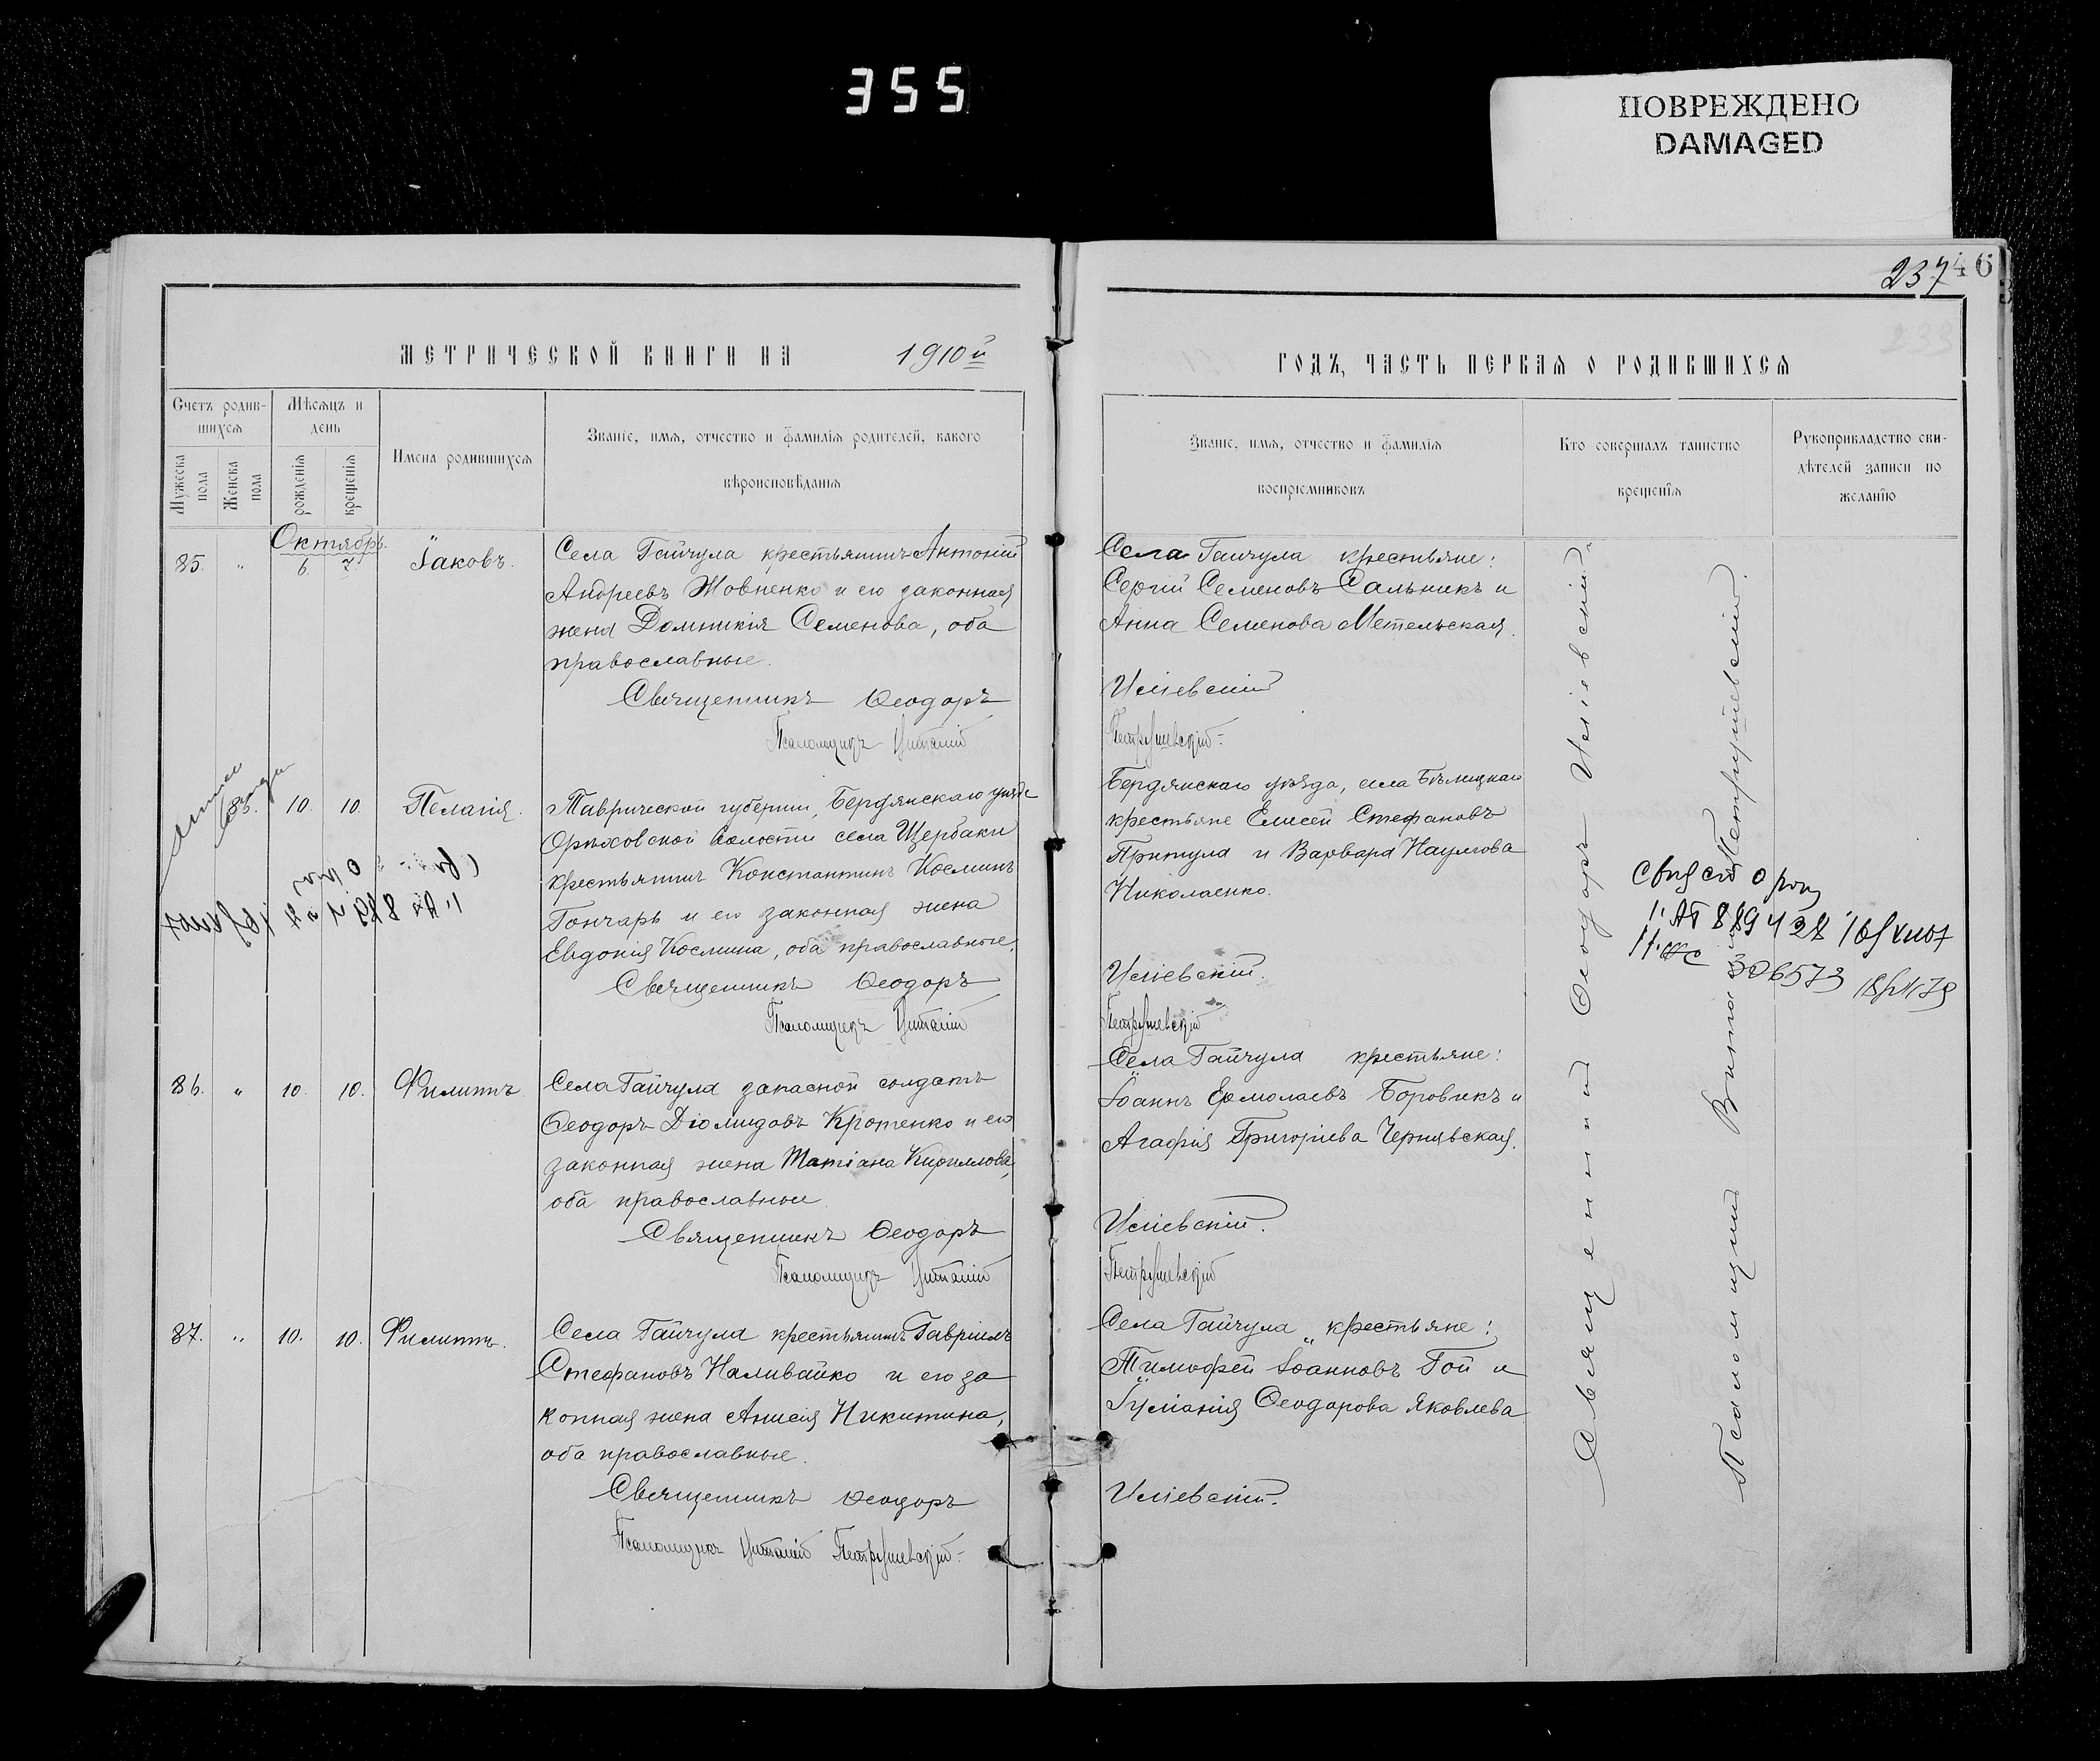 355
ПОВРЕЖДЕНО
DAMAGED
237
46
МЕТРИЧЕСКОЙ КНИГИ НА 1910й
ГОДЪ, ЧАСТЬ ПЕРВАЯ О РОДИВШИХСЯ
Счетъ родив-
шихся
Мѣсяцъ и
день
Мужеска
пола
Женска
пола
рожденія
крещенія
Имена родившихся
Званіе, имя, отчество и фамилія родителей, какого
вѣроисповѣданія
Званіе, имя, отчество и фамилія
воспріемниковъ
Кто совершалъ таинство
крещенія
Рукоприкладство сви-
дѣтелей записи по
желанію
Октябрь.
85. " 6. 7. Іаковъ.
Села Гайчула крестьянинъ Антоній
Андреевъ Жовненко и его законная
жена Домникія Семенова, оба
православные.
Священникъ Ѳеодоръ
Псаломщикъ Виталій
Села Гайчула крестьяне:
Сергій Семеновъ Сальникъ и
Анна Семенова Метельская.
Петрушевскій
85. 10. 10. Пелагія.
Таврической губерніи, Бердянскаго уѣзда
Орѣховской волости села Щербаки
крестьянинъ Константинъ Косминъ
Гончаръ и его законная жена
Евдокія Космина, оба православные.
Священникъ Ѳеодоръ
Псаломщикъ Виталій
Бердянскаго уѣзда, села Бѣлицкаго
крестьяне Елисей Стефановъ
Притула и Варвара Наумова
Николаенко.
Петрушевскій
86. " 10. 10. Филиппъ
Села Гайчула запасной солдатъ
Ѳеодоръ Діомидовъ Кротенко и его
законная жена Татіана Кириллова,
оба православные
Священникъ Ѳеодоръ
Псаломщикъ Виталій
Села Гайчула крестьяне:
Іоаннъ Ермолаевъ Боровикъ и
Агафія Григоріева Чернявская.
Петрушевскій
87. " 10. 10. Филиппъ.
Села Гайчула крестьянинъ Гавріилъ
Стефановъ Наливайко и его за
конная жена Анисія Никитина,
оба православные.
Священникъ Ѳеодоръ
Псаломщикъ Виталій Петрушевскій
Села Гайчула крестьяне:
Тимофей Іоанновъ Гой и
Іуліанія Ѳеодорова Яковлева
Священникъ Ѳеодоръ
Псаломщикъ Виталій Петрушевскій.
306573